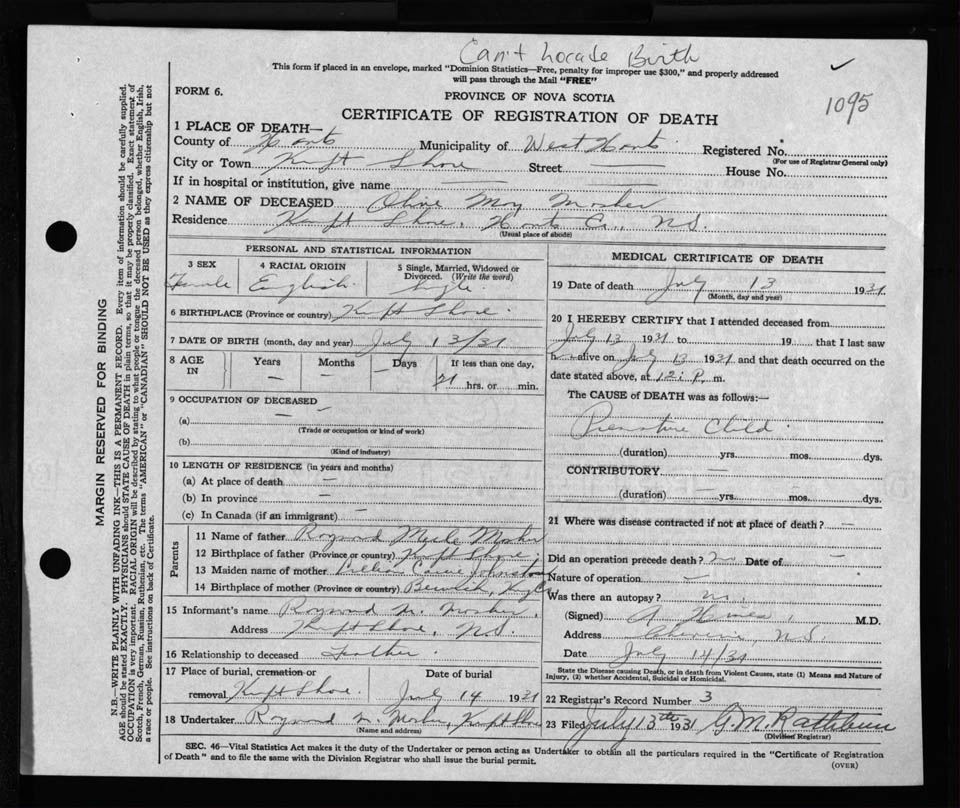 Can't Locate Birth
This form if placed in an envelope, marked "Dominion Statistics—Free, penalty for improper use $300," and properly addressed
will pass through the Mail "FREE"
1095
FORM 6.
PROVINCE OF NOVA SCOTIA
CERTIFICATE OF REGISTRATION OF DEATH
1 PLACE OF DEATH—
County of Hants Municipality of West Hants Registered No.
(For use of Registrar General only)
City or Town Kempt Shore Street House No.
If in hospital or institution, give name
2 NAME OF DECEASED Olive May Mosher
Residence Kempt Shore, Hants Co., N.S.
(Usual place of abode)
PERSONAL AND STATISTICAL INFORMATION
3 SEX 4 RACIAL ORIGIN 5 Single, Married, Widowed or Divorced. (Write the word)
Female English Single
6 BIRTHPLACE (Province or country) Kempt Shore.
7 DATE OF BIRTH (month, day and year) July 13/31
8 AGE IN Years Months Days If less than one day,
— — — hrs. or min.
9 OCCUPATION OF DECEASED —
(a) —
(Trade or occupation or kind of work)
(b)
(Kind of industry)
10 LENGTH OF RESIDENCE (in years and months)
(a) At place of death —
(b) In province —
(c) In Canada (if an immigrant) —
Parents
11 Name of father Raymond Merle Mosher
12 Birthplace of father (Province or country) Kempt Shore,
13 Maiden name of mother Lillian Johnston
14 Birthplace of mother (Province or country)
15 Informant's name Raymond M. Mosher,
Address Kempt Shore, N.S.
16 Relationship to deceased Father.
17 Place of burial, cremation or Date of burial
removal Kempt Shore. July 14 1931
18 Undertaker Raymond M. Mosher, Kempt Shore
(Name and address)
MEDICAL CERTIFICATE OF DEATH
19 Date of death July 13 1931
(Month, day and year)
20 I HEREBY CERTIFY that I attended deceased from
July 13 1931 to 19 that I last saw
h alive on July 13 1931 and that death occurred on the
date stated above, at m.
The CAUSE of DEATH was as follows:—
Premature Child.
(duration) yrs. mos. dys.
CONTRIBUTORY —
(duration) — yrs. mos. dys.
21 Where was disease contracted if not at place of death? —
Did an operation precede death? no Date of —
Nature of operation —
Was there an autopsy? no.
(Signed) M.D.
Address Cheverie N.S.
Date July 14/31
State the Disease causing Death, or in death from Violent Causes, state (1) Means and Nature of
Injury, (2) whether Accidental, Suicidal or Homicidal.
22 Registrar's Record Number 3
23 Filed July 13th 1931 G.M. Rathbun
(Division Registrar)
SEC. 46—Vital Statistics Act makes it the duty of the Undertaker or person acting as Undertaker to obtain all the particulars required in the "Certificate of Registration
of Death" and to file the same with the Division Registrar who shall issue the burial permit.
(OVER)
MARGIN RESERVED FOR BINDING
N.B.—WRITE PLAINLY WITH UNFADING INK—THIS IS A PERMANENT RECORD. Every item of information should be carefully supplied.
AGE should be stated EXACTLY. PHYSICIANS should STATE CAUSE OF DEATH in plain terms, so that it may be properly classified. Exact statement of
OCCUPATION is very important. RACIAL ORIGIN will be described by stating to what people or tongue the deceased person belonged, whether English, Irish,
Scotch, French, German, Russian, Ruthenian, etc. The terms "AMERICAN" or "CANADIAN" SHOULD NOT BE USED as they express citizenship but not
a race or people. See instructions on back of Certificate.